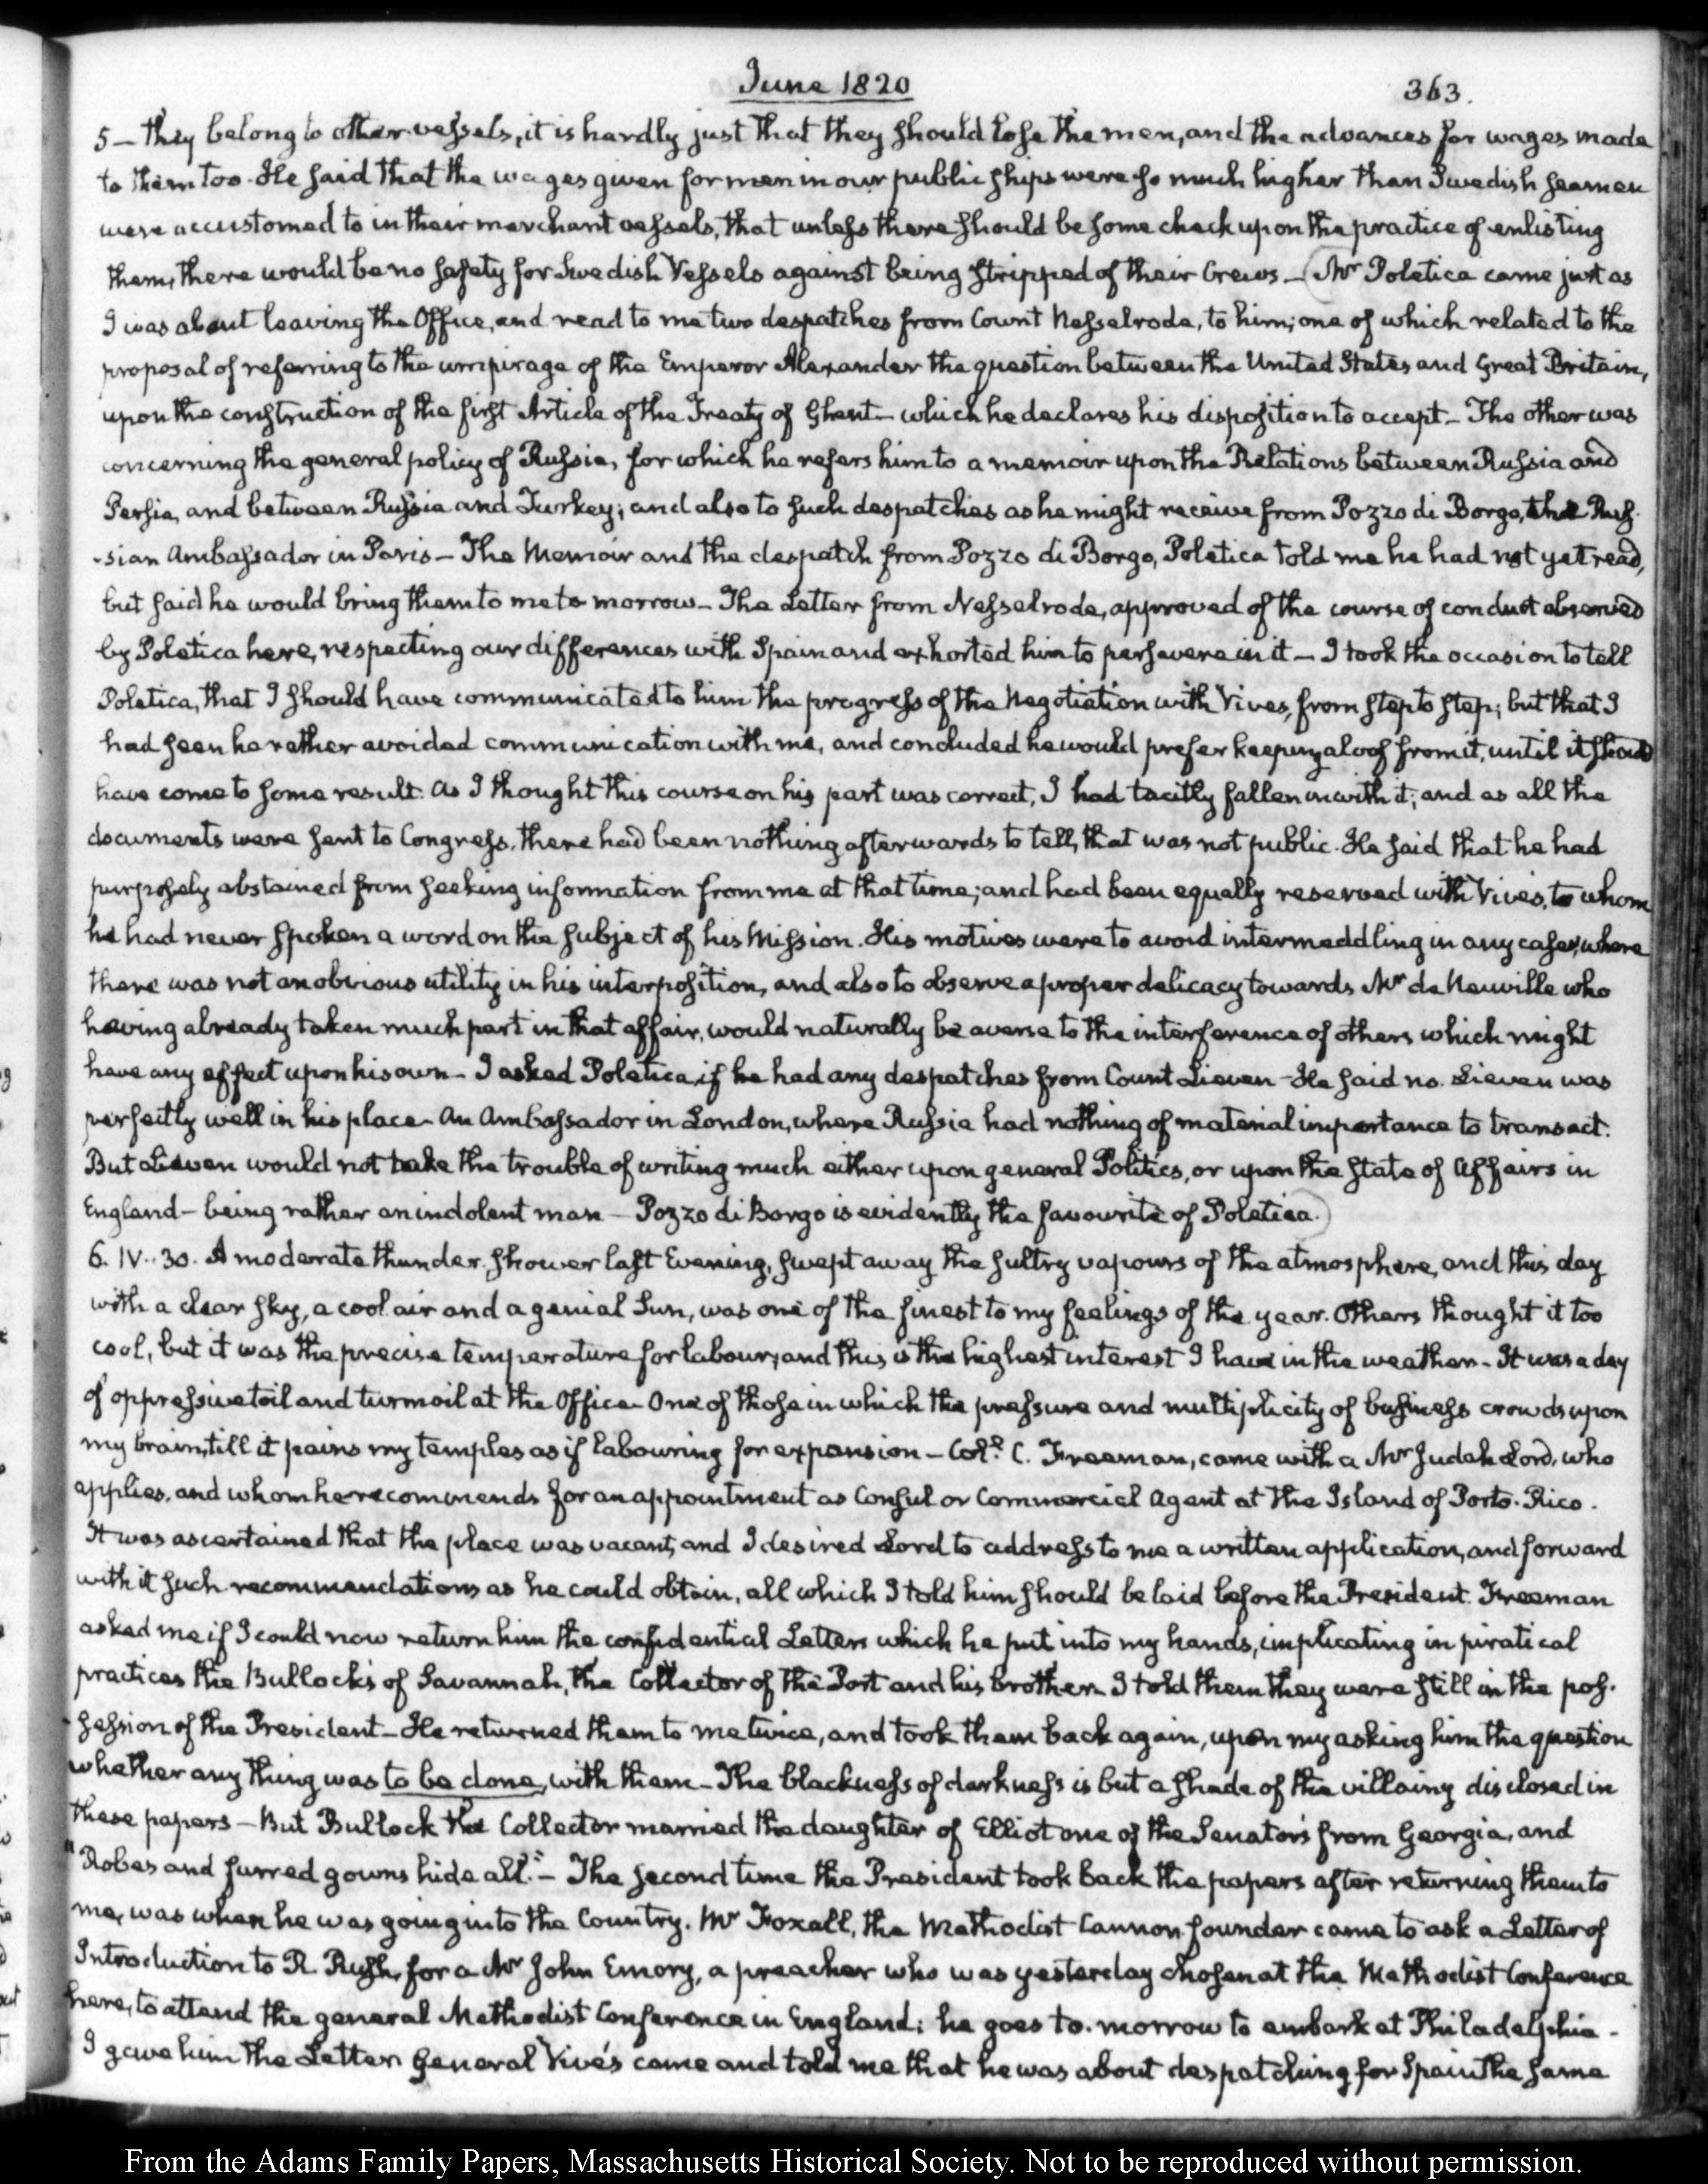 June 1820
363.
5 — they belong to other vessels, it is hardly just that they should lose the men, and the advances for wages made
to them too. He said that the wages given for men in our public ships were so much higher than Swedish seamen
were accustomed to in their merchant vessels, that unless there should be some check upon the practice of enlisting
them, there would be no safety for Swedish Vessels against being stripped of their Crews — (Mr Poletica came just as
I was about leaving the Office, and read to me two despatches from Count Nesselrode, to him; one of which related to the
proposal of referring to the umpirage of the Emperor Alexander the question between the United States and Great Britain,
upon the construction of the first Article of the Treaty of Ghent — which he declares his disposition to accept — The other was
concerning the general policy of Russia, for which he refers him to a memoir upon the Relations between Russia and
Persia, and between Russia and Turkey; and also to such despatches as he might receive from Pozzo di Borgo, the Rus-
-sian Ambassador in Paris — The Memoir and the despatch from Pozzo di Borgo, Poletica told me he had not yet read,
but said he would bring them to me to morrow — The Letter from Nesselrode, approved of the course of conduct observed
by Poletica here, respecting our differences with Spain and exhorted him to persevere in it — I took the occasion to tell
Poletica, that I should have communicated to him the progress of the Negotiation with Vives, from step to step; but that I
had seen he rather avoided communication with me, and concluded he would prefer keeping aloof from it, until it should
have come to some result. As I thought this course on his part was correct, I had tacitly fallen in with it; and as all the
documents were sent to Congress, there had been nothing afterwards to tell, that was not public. He said that he had
purposely abstained from seeking information from me at that time; and had been equally reserved with Vives, to whom
he had never spoken a word on the subject of his Mission. His motives were to avoid intermeddling in any case, where
there was not an obvious utility in his interposition, and also to observe a proper delicacy towards Mr de Neuville who
having already taken much part in that affair, would naturally be averse to the interference of others which might
have any effect upon his own — I asked Poletica if he had any despatches from Count Lieven — He said no. Lieven was
perfectly well in his place — An Ambassador in London, where Russia had nothing of material importance to transact.
But Lieven would not take the trouble of writing much either upon general Politics, or upon the state of affairs in
England — being rather an indolent man — Pozzo di Borgo is evidently the favourite of Poletica.)
6. IV.. 30. A moderate thunder shower last Evening, swept away the sultry vapours of the atmosphere, and this day
with a clear sky, a cool air and a genial Sun, was one of the finest to my feelings of the year. Others thought it too
cool, but it was the precise temperature for labour, and this is the highest interest I have in the weather — It was a day
of oppressive toil and turmoil at the Office — One of those in which the pressure and multiplicity of business crowds upon
my brain, till it pains my temples as if labouring for expansion — Coll. C. Freeman, came with a Mr Judah Lord, who
applies, and whom he recommends for an appointment as Consul or Commercial Agent at the Island of Porto-Rico.
It was ascertained that the place was vacant, and I desired Lord to address to me a written application, and forward
with it such recommendations as he could obtain, all which I told him should be laid before the President. Freeman
asked me if I could now return him the confidential Letters which he put into my hands, implicating in piratical
practices the Bullock's of Savannah, the Collector of the Port and his brother. I told them they were still in the pos-
-session of the President — He returned them to me twice, and took them back again, upon my asking him the question
whether any thing was to be done, with them — The blackness of darkness is but a shade of the villainy disclosed in
these papers — But Bullock the Collector married the daughter of Elliot one of the Senators from Georgia, and
"Robes and furred gowns hide all." — The second time the President took back the papers after returning them to
me, was when he was going into the Country. Mr Foxall, the Methodist Cannon founder came to ask a Letter of
Introduction to R. Rush, for a Mr John Emory, a preacher who was yesterday chosen at the Methodist Conference
here, to attend the general Methodist Conference in England; he goes to-morrow to embark at Philadelphia -
I gave him the Letter. General Vivés came and told me that he was about despatching for Spain the same
From the Adams Family Papers, Massachusetts Historical Society. Not to be reproduced without permission.